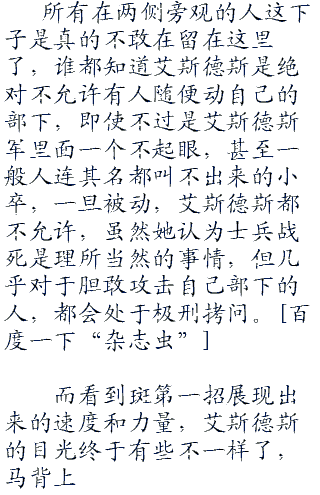 所有在两侧旁观的人这下
子是真的不敢在留在这里
了，谁都知道艾斯德斯是绝
对不允许有人随便动自己的
部下，即使不过是艾斯德斯
军里面一个不起眼，甚至一
般人连其名都叫不出来的小
卒，一旦被动，艾斯德斯都
不允许，虽然她认为士兵战
死是理所当然的事情，但几
乎对于胆敢攻击自己部下的
人，都会处于极刑拷问。[百
度一下“杂志虫”]
而看到斑第一招展现出
来的速度和力量，艾斯德斯
的目光终于有些不一样了，
马背上